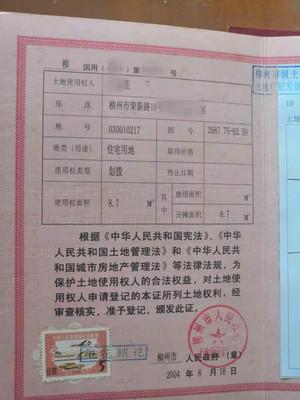 柳 国用( )第 号
土地使用权人
座 落 柳州市荣新路 室
地 号 030010217 图 号 2687.75-92.50
地类(用途) 住宅用地 取得价格
使用权类型 划拨 终止日期
使用权面积 8.7 M² 其中 独用面积 M²
分摊面积 8.7 M²
根据《中华人民共和国宪法》、《中华
人民共和国土地管理法》和《中华人民共
和国城市房地产管理法》等法律法规，为
保护土地使用权人的合法权益，对土地使
用权人申请登记的本证所列土地权利，经
审查核实，准予登记，颁发此证。
柳州市 人民政府（章）
2004 年 8 月 16 日
5
柳州市国土
土地登记发证
10